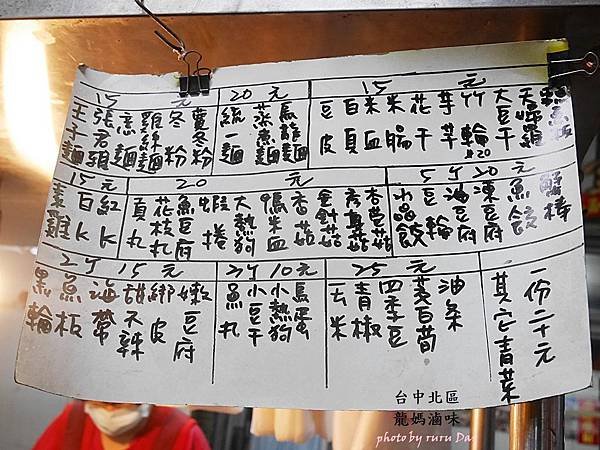 15 元
王子麵
張君雅
意麵
雞絲麵
冬粉
寬冬粉
20 元
統一麵
蒸煮麵
烏龍麵
15 元
豆皮
百頁
米血
米腸
花干
芋芋
竹輪
大豆干
天婦羅
15 元
素雞
百K
紅K
20 元
貢丸
花枝丸
魚豆腐
蝦捲
大熱狗
鴨米血
香菇
金針菇
杏鮑菇
5个20元
水晶餃
豆輪
油豆腐
凍豆腐
魚餃
蟹棒
2个15元
黑輪
魚板
海帶
甜不辣
綁皮
嫩豆腐
3个10元
魚丸
小豆干
小熱狗
鳥蛋
25 元
玉米
青椒
四季豆
茭白筍
油条
其它青菜
一份二十元
台中北區
龍媽滷味
photo by ruru Da